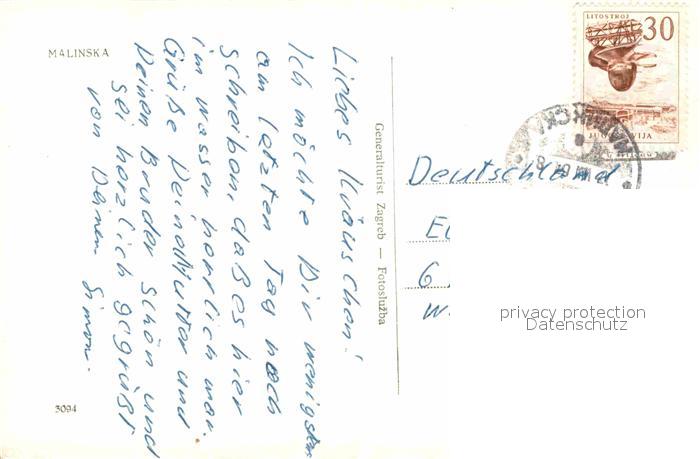 MALINSKA
Liebes Kräuschen!
Ich möchte Dir wenigstens
am letzten Tag noch
schreiben, daß es hier
im wasser herrlich war.
Grüße Deine Mutter und
Deinen Bruder schön und
sei herzlich gegrüßt
von Deinem Simon.
3094
Generalturist Zagreb — Fotoslužba
LITOSTROJ
30
JUGOSLAVIJA
Deutschland
6
W
privacy protection
Datenschutz